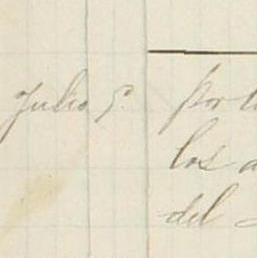 Julio 5. por l
los a
del